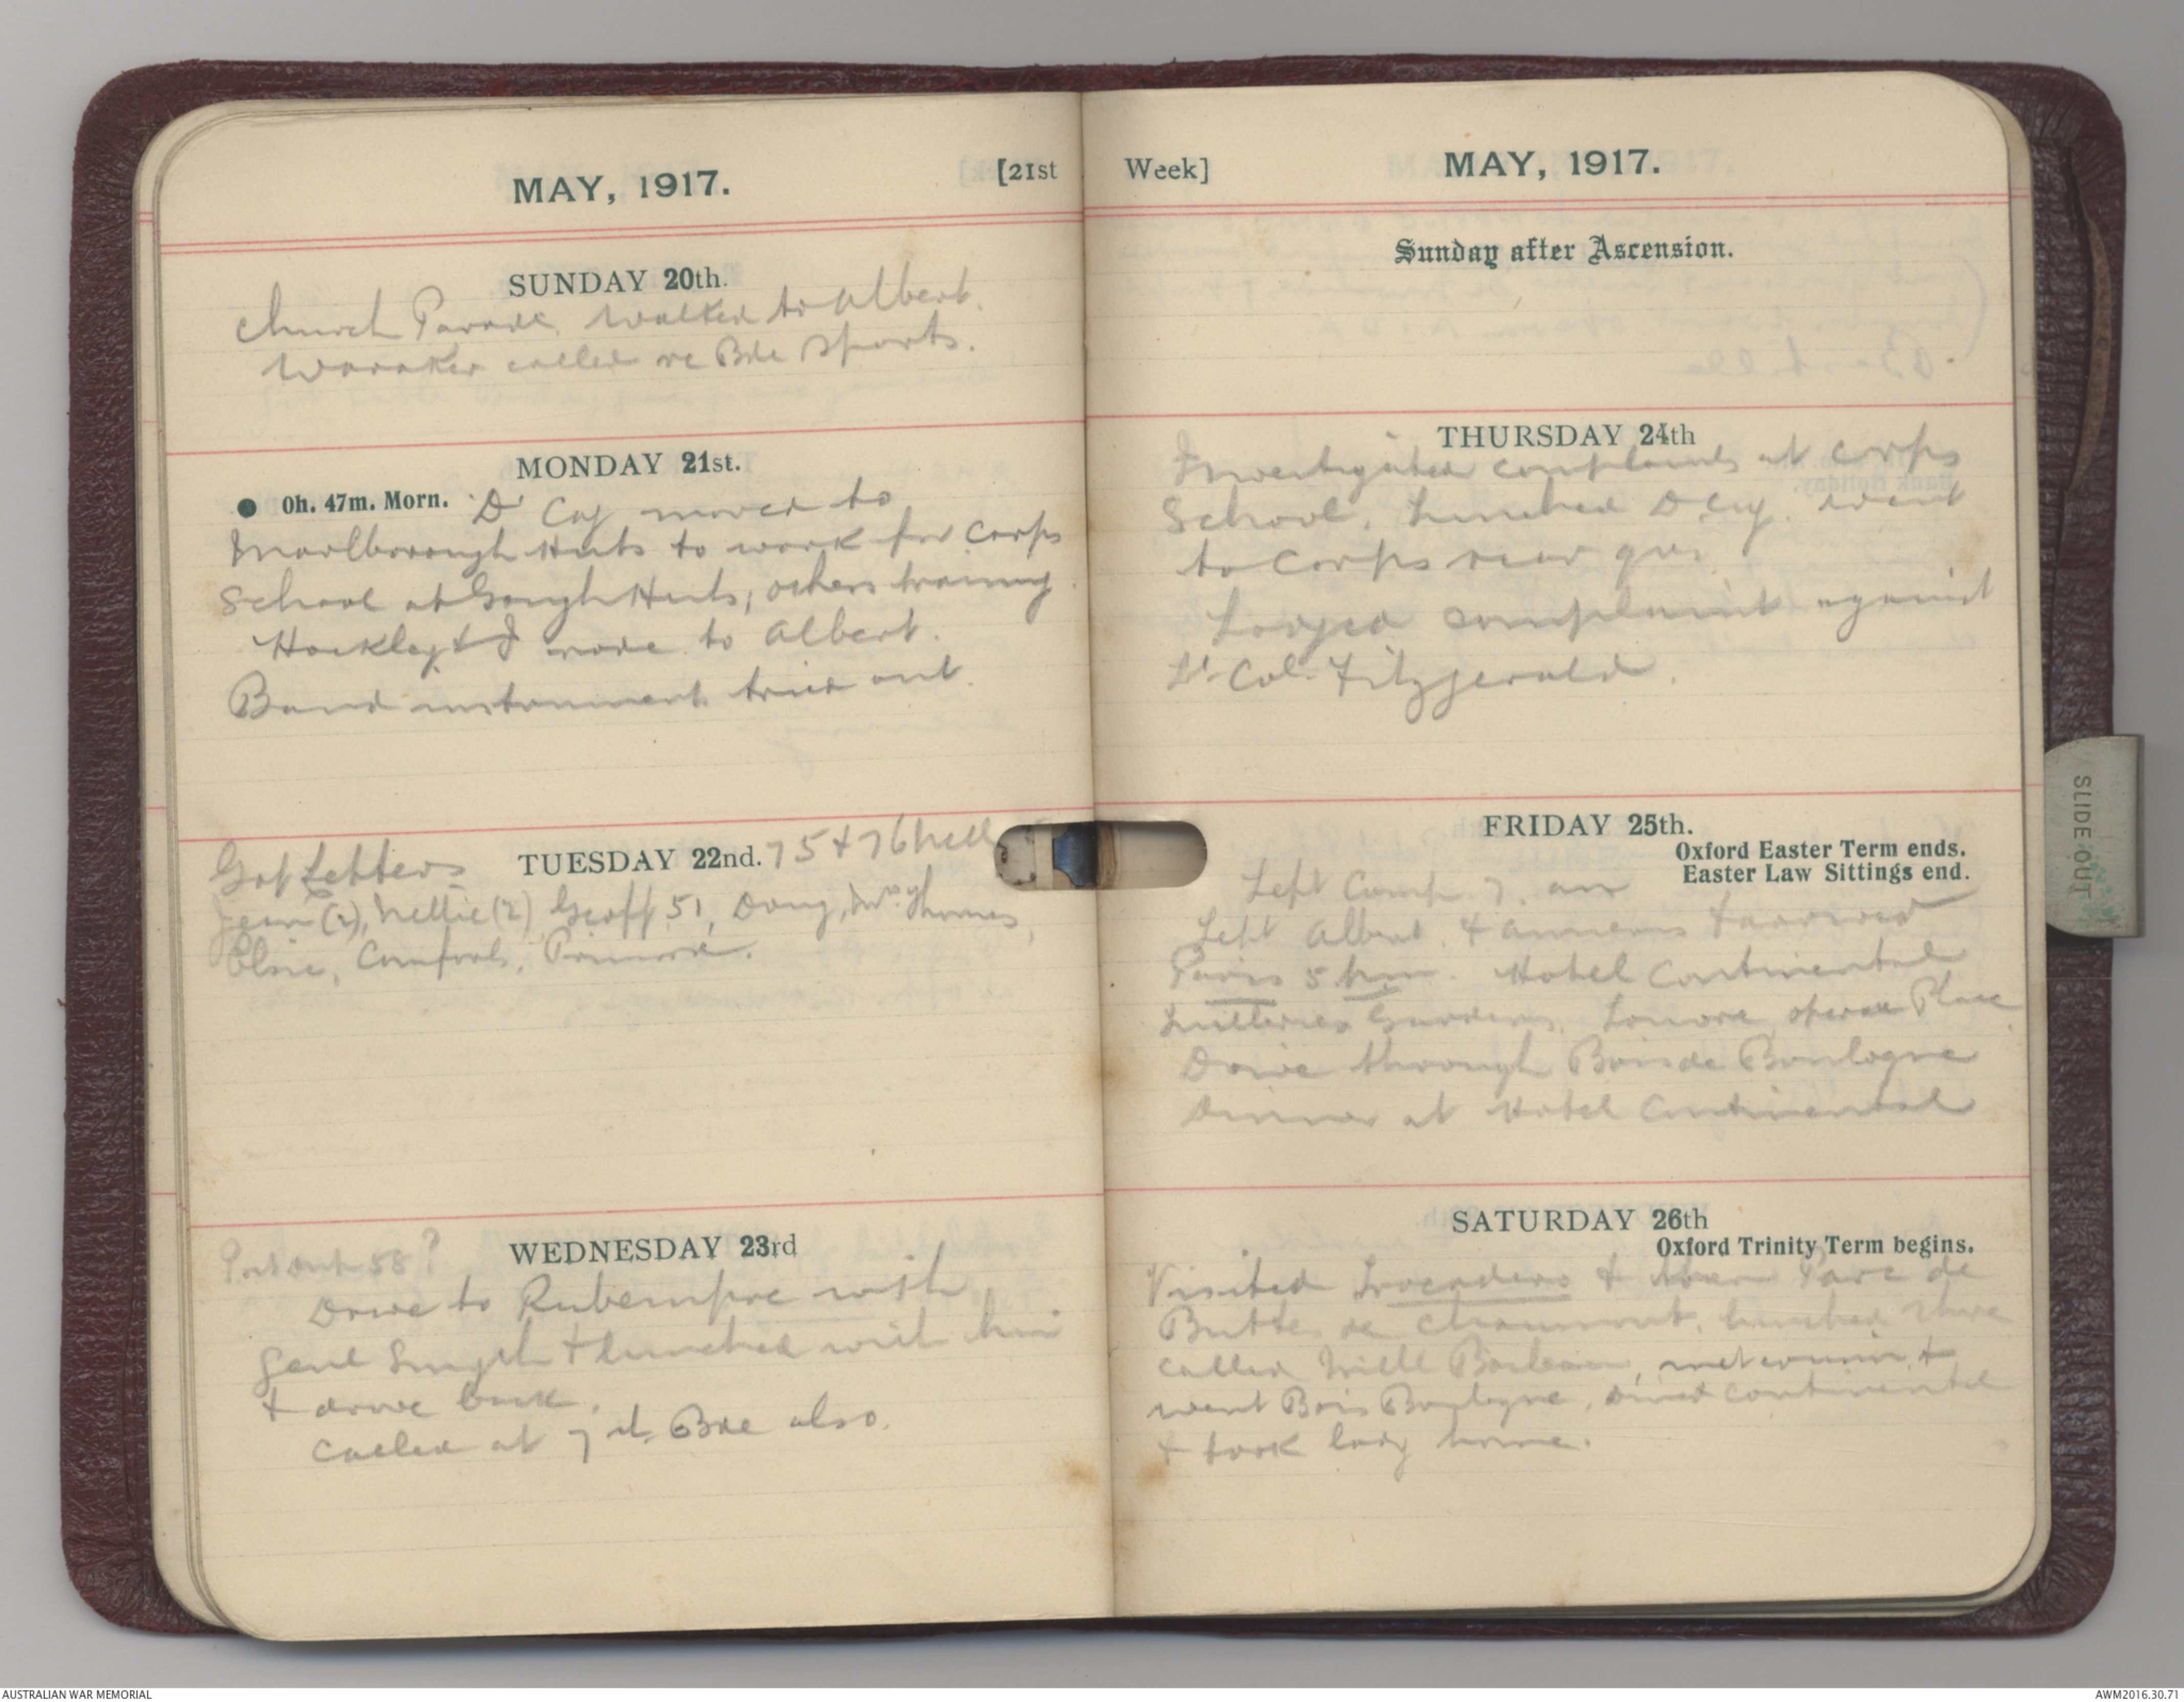 MAY, 1917. [21st
SUNDAY 20th.
Church Parade. Walked to Albert.
Woraker called re Bde Sports.
MONDAY 21st.
0h. 47m. Morn. 'D' Coy moved to
Marlborough Huts to work for Corps
School at Gough Huts, others training.
Hockley & I rode to Albert.
Band instruments tried out.
Got Letters TUESDAY 22nd. 75 & 76 Nell
Jean (2), Nellie (2) Geoff 51, Doug, Mrs Thomas,
Elsie, Comforts, Primrose.
WEDNESDAY 23rd
Put out 58?
Drove to Rubempre with
Genl Smyth & lunched with him
& drove back.
Called at 7th Bde also.
Week] MAY, 1917.
Sunday after Ascension.
THURSDAY 24th
Investigated complaints at Corps
School. Lunched D Coy. went
to Corps rear
Lodged complaint against
Lt Col. Fitzgerald.
FRIDAY 25th.
Oxford Easter Term ends.
Easter Law Sittings end.
Left Camp 7. am
Left Albert & Amiens & arrived
Paris 5 pm. Hotel Continental
Tuilleries Gardens, Louvre, Opera Place
Drive through Bois de Boulogne
Dinner at Hotel Continental
SATURDAY 26th
Oxford Trinity Term begins.
Visited Trocadero & Parc de
Buttes de Chaumont, lunched there
called Mlle met &
went Bois Boulogne, dined Continental
& took lady home.
SLIDE OUT
AUSTRALIAN WAR MEMORIAL
AWM2016.30.71